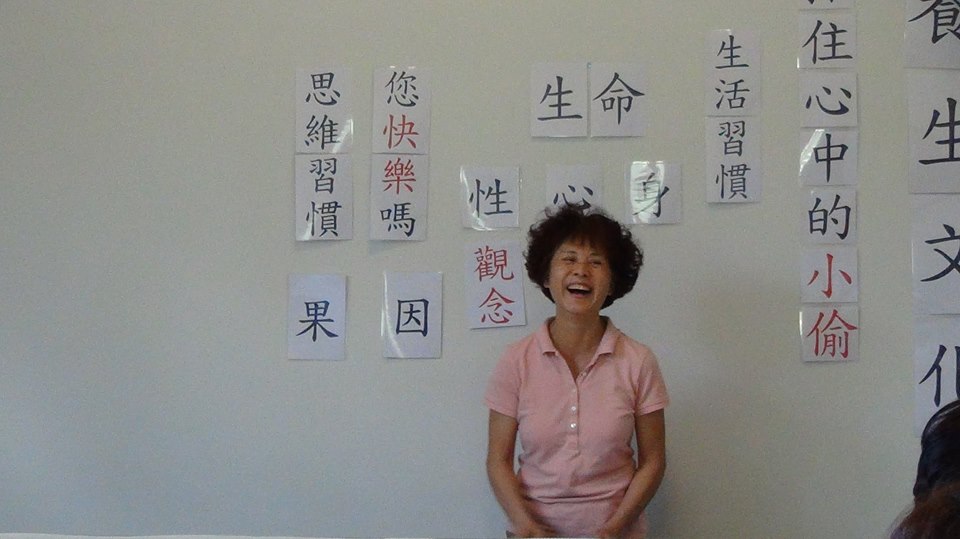 養生文化
住心中的小偷
生活習慣
生命
身心性
觀念
您快樂嗎
思維習慣
因果